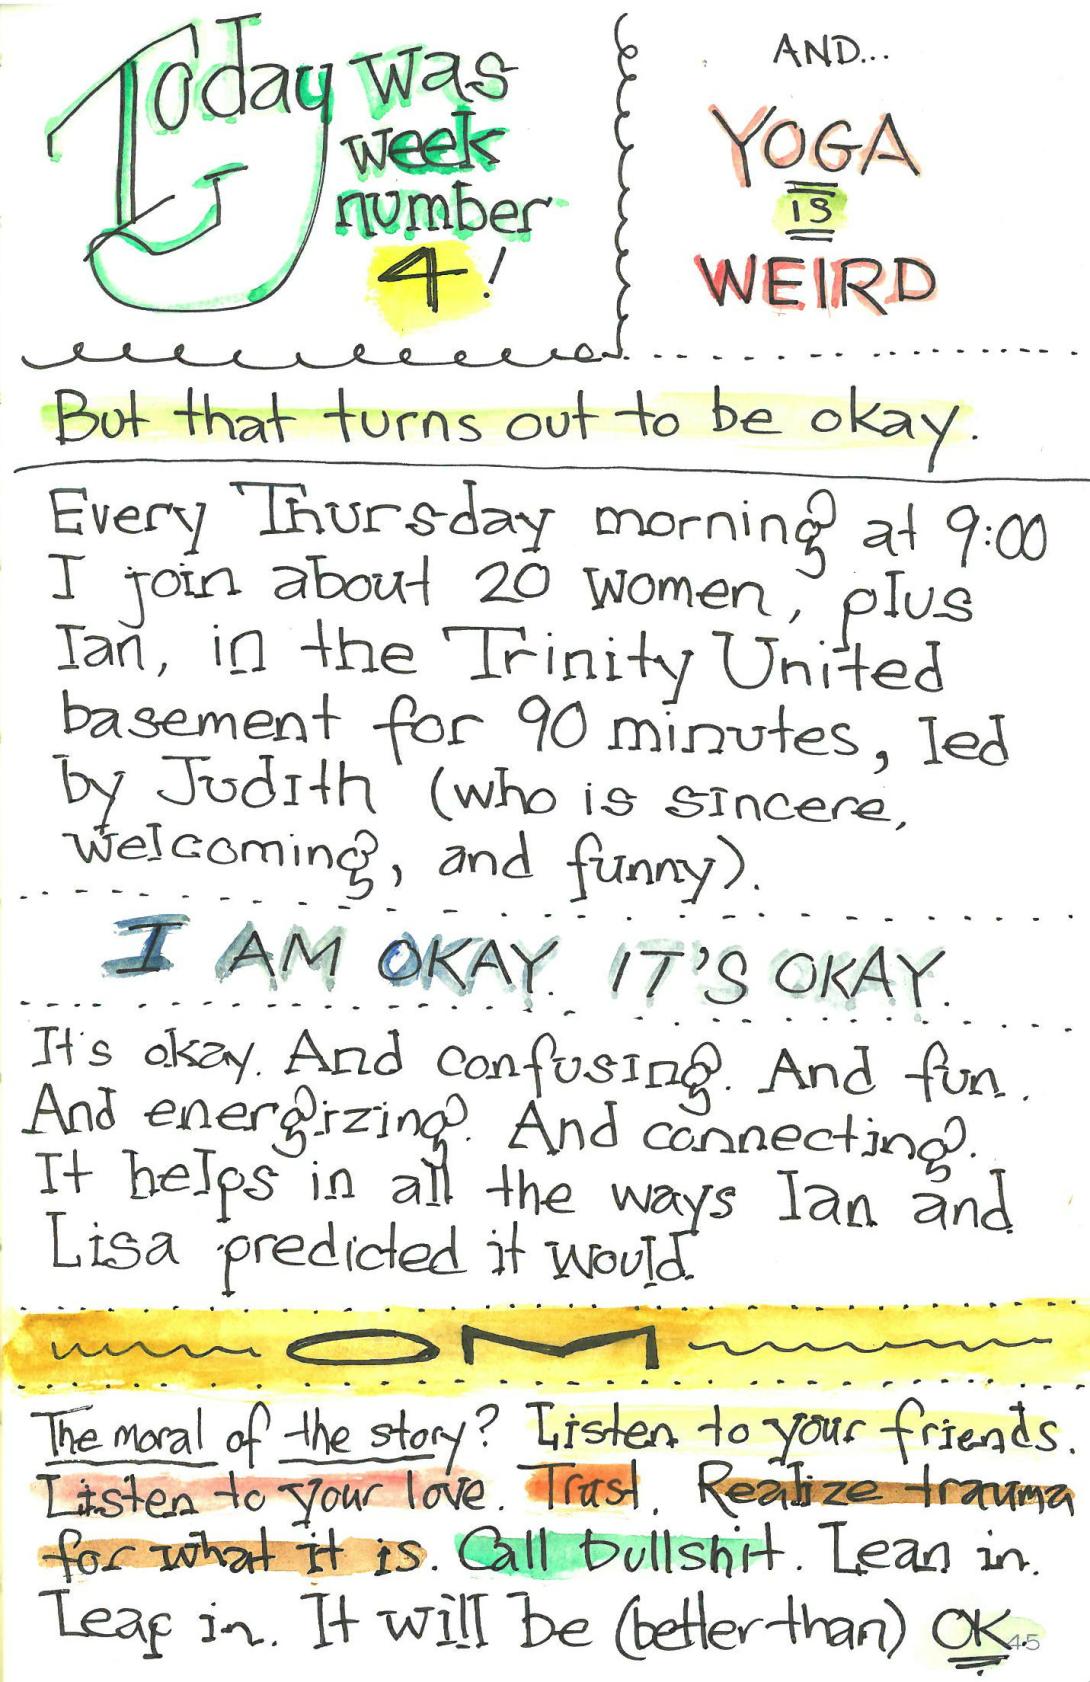 Today was
week
number
4!
AND...
YOGA
IS
WEIRD
But that turns out to be okay.
Every Thursday morning at 9:00
I join about 20 women, plus
Ian, in the Trinity United
basement for 90 minutes, led
by Judith (who is sincere,
welcoming, and funny).
I AM OKAY. IT'S OKAY.
It's okay. And confusing. And fun.
And energizing. And connecting.
It helps in all the ways Ian and
Lisa predicted it would.
OM
The moral of the story? Listen to your friends.
Listen to your love. Trust. Realize trauma
for what it is. Call bullshit. Lean in.
Leap in. It will be (better than) OK
45